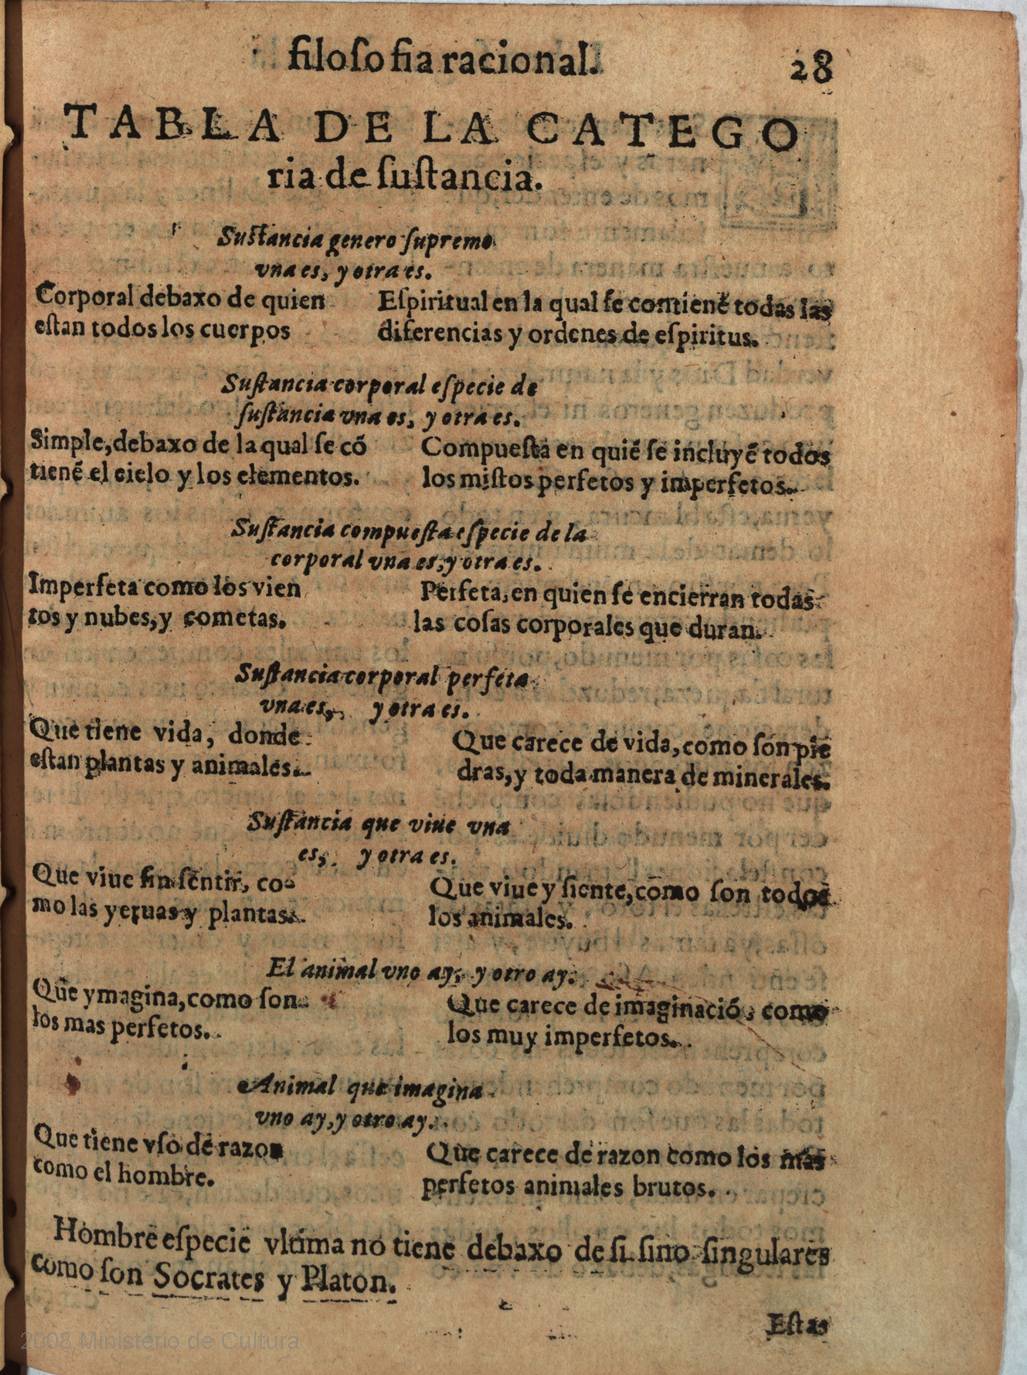 filosofia racional. 28
TABLA DE LA CATEGO
ria de ſuſtancia.
Suſtancia genero ſupremo
vna es, y otra es.
Corporal debaxo de quien
eſtan todos los cuerpos
Eſpiritual en la qual ſe contienẽ todas las
diferencias y ordenes de eſpiritus.
Suſtancia corporal eſpecie de
ſuſtancia vna es, y otra es.
Simple, debaxo de la qual ſe cõ
tienẽ el cielo y los elementos.
Compueſta en quiẽ ſe incluyẽ todos
los miſtos perfetos y imperfetos.
Suſtancia compueſta eſpecie de la
corporal vna es, y otra es.
Imperfeta como los vien
tos y nubes, y cometas.
Perfeta, en quien ſe encierran todas
las coſas corporales que duran.
Suſtancia corporal perfeta
vna es, y otra es.
Que tiene vida, donde
eſtan plantas y animales.
Que carece de vida, como ſon pie
dras, y toda manera de minerales.
Suſtancia que viue vna
es, y otra es.
Que viue ſin ſentir, co-
mo las yeruas y plantas.
Que viue y ſiente, como ſon todos
los animales.
El animal vno ay, y otro ay.
Que ymagina, como ſon
los mas perfetos.
Que carece de imaginaciõ, como
los muy imperfetos.
Animal que imagina
vno ay, y otro ay.
Que tiene vſo de razon
como el hombre.
Que carece de razon como los mas
perfetos animales brutos.
Hombre eſpecie vltima no tiene debaxo de ſi ſino ſingulares
como ſon Socrates y Platon.
Eſtas
2008 Ministerio de Cultura